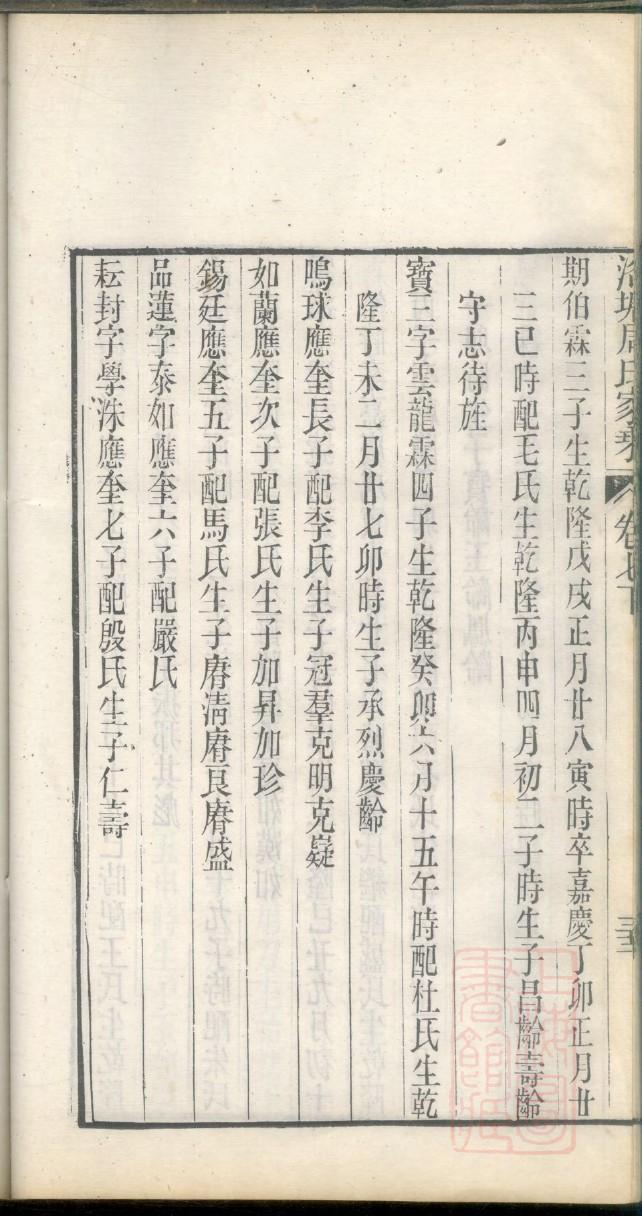 周氏家乘 卷七下
期伯霖三子生乾隆戊戌正月廿八寅時卒嘉慶丁卯正月廿
三巳時配毛氏生乾隆丙申四月初二子時生子昌齡壽齡
守志待旌
寶三字雲龍霖四子生乾隆癸卯六月十五午時配杜氏生乾
隆丁未二月廿七卯時生子承烈慶齡
鳴球應奎長子配李氏生子冠羣克明克嶷
如蘭應奎次子配張氏生子加昇加珍
錫廷應奎五子配馬氏生子廥清廥良廥盛
品蓮字泰如應奎六子配嚴氏
耘封字學洙應奎七子配殷氏生子仁壽